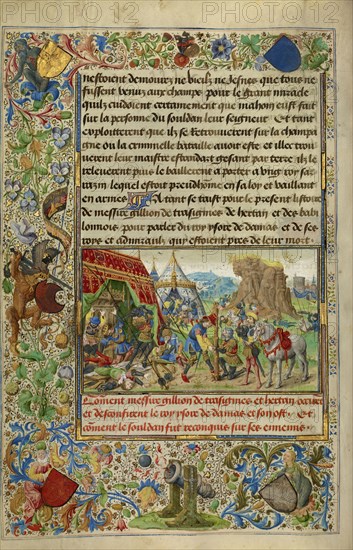 nestoient demourez ne vieilz ne Jesnes que tous ne
fussent venuz aux champs pour le grant miracle
quilz cuidoient certainement que mahon eust fait
sur la personne du souldan leur seigneur Et tant
exploitterent que ilz se Retrouuerent sur la champai
gne ou la criminelle bataille auoit este et illec trou
uerent leur maistre estandart gesant par terre ilz le
releuerent puis le baillerent a porter a vng roy sar
razin lequel estoit preudhomme en sa loy et vaillant
en armes A tant se taist pour le present listoire
de messire gillion de trasignies de hertan et des babi
lonnois pour parler du roy ysore de damas et de ses
roys et admiraulz qui estoient pres de leur mort
Coment messire gillion de trasignies et hertan
et desconfirent le roy ysore de damas et son ost Et
coment le souldan fut rescouz sur ses ennemis